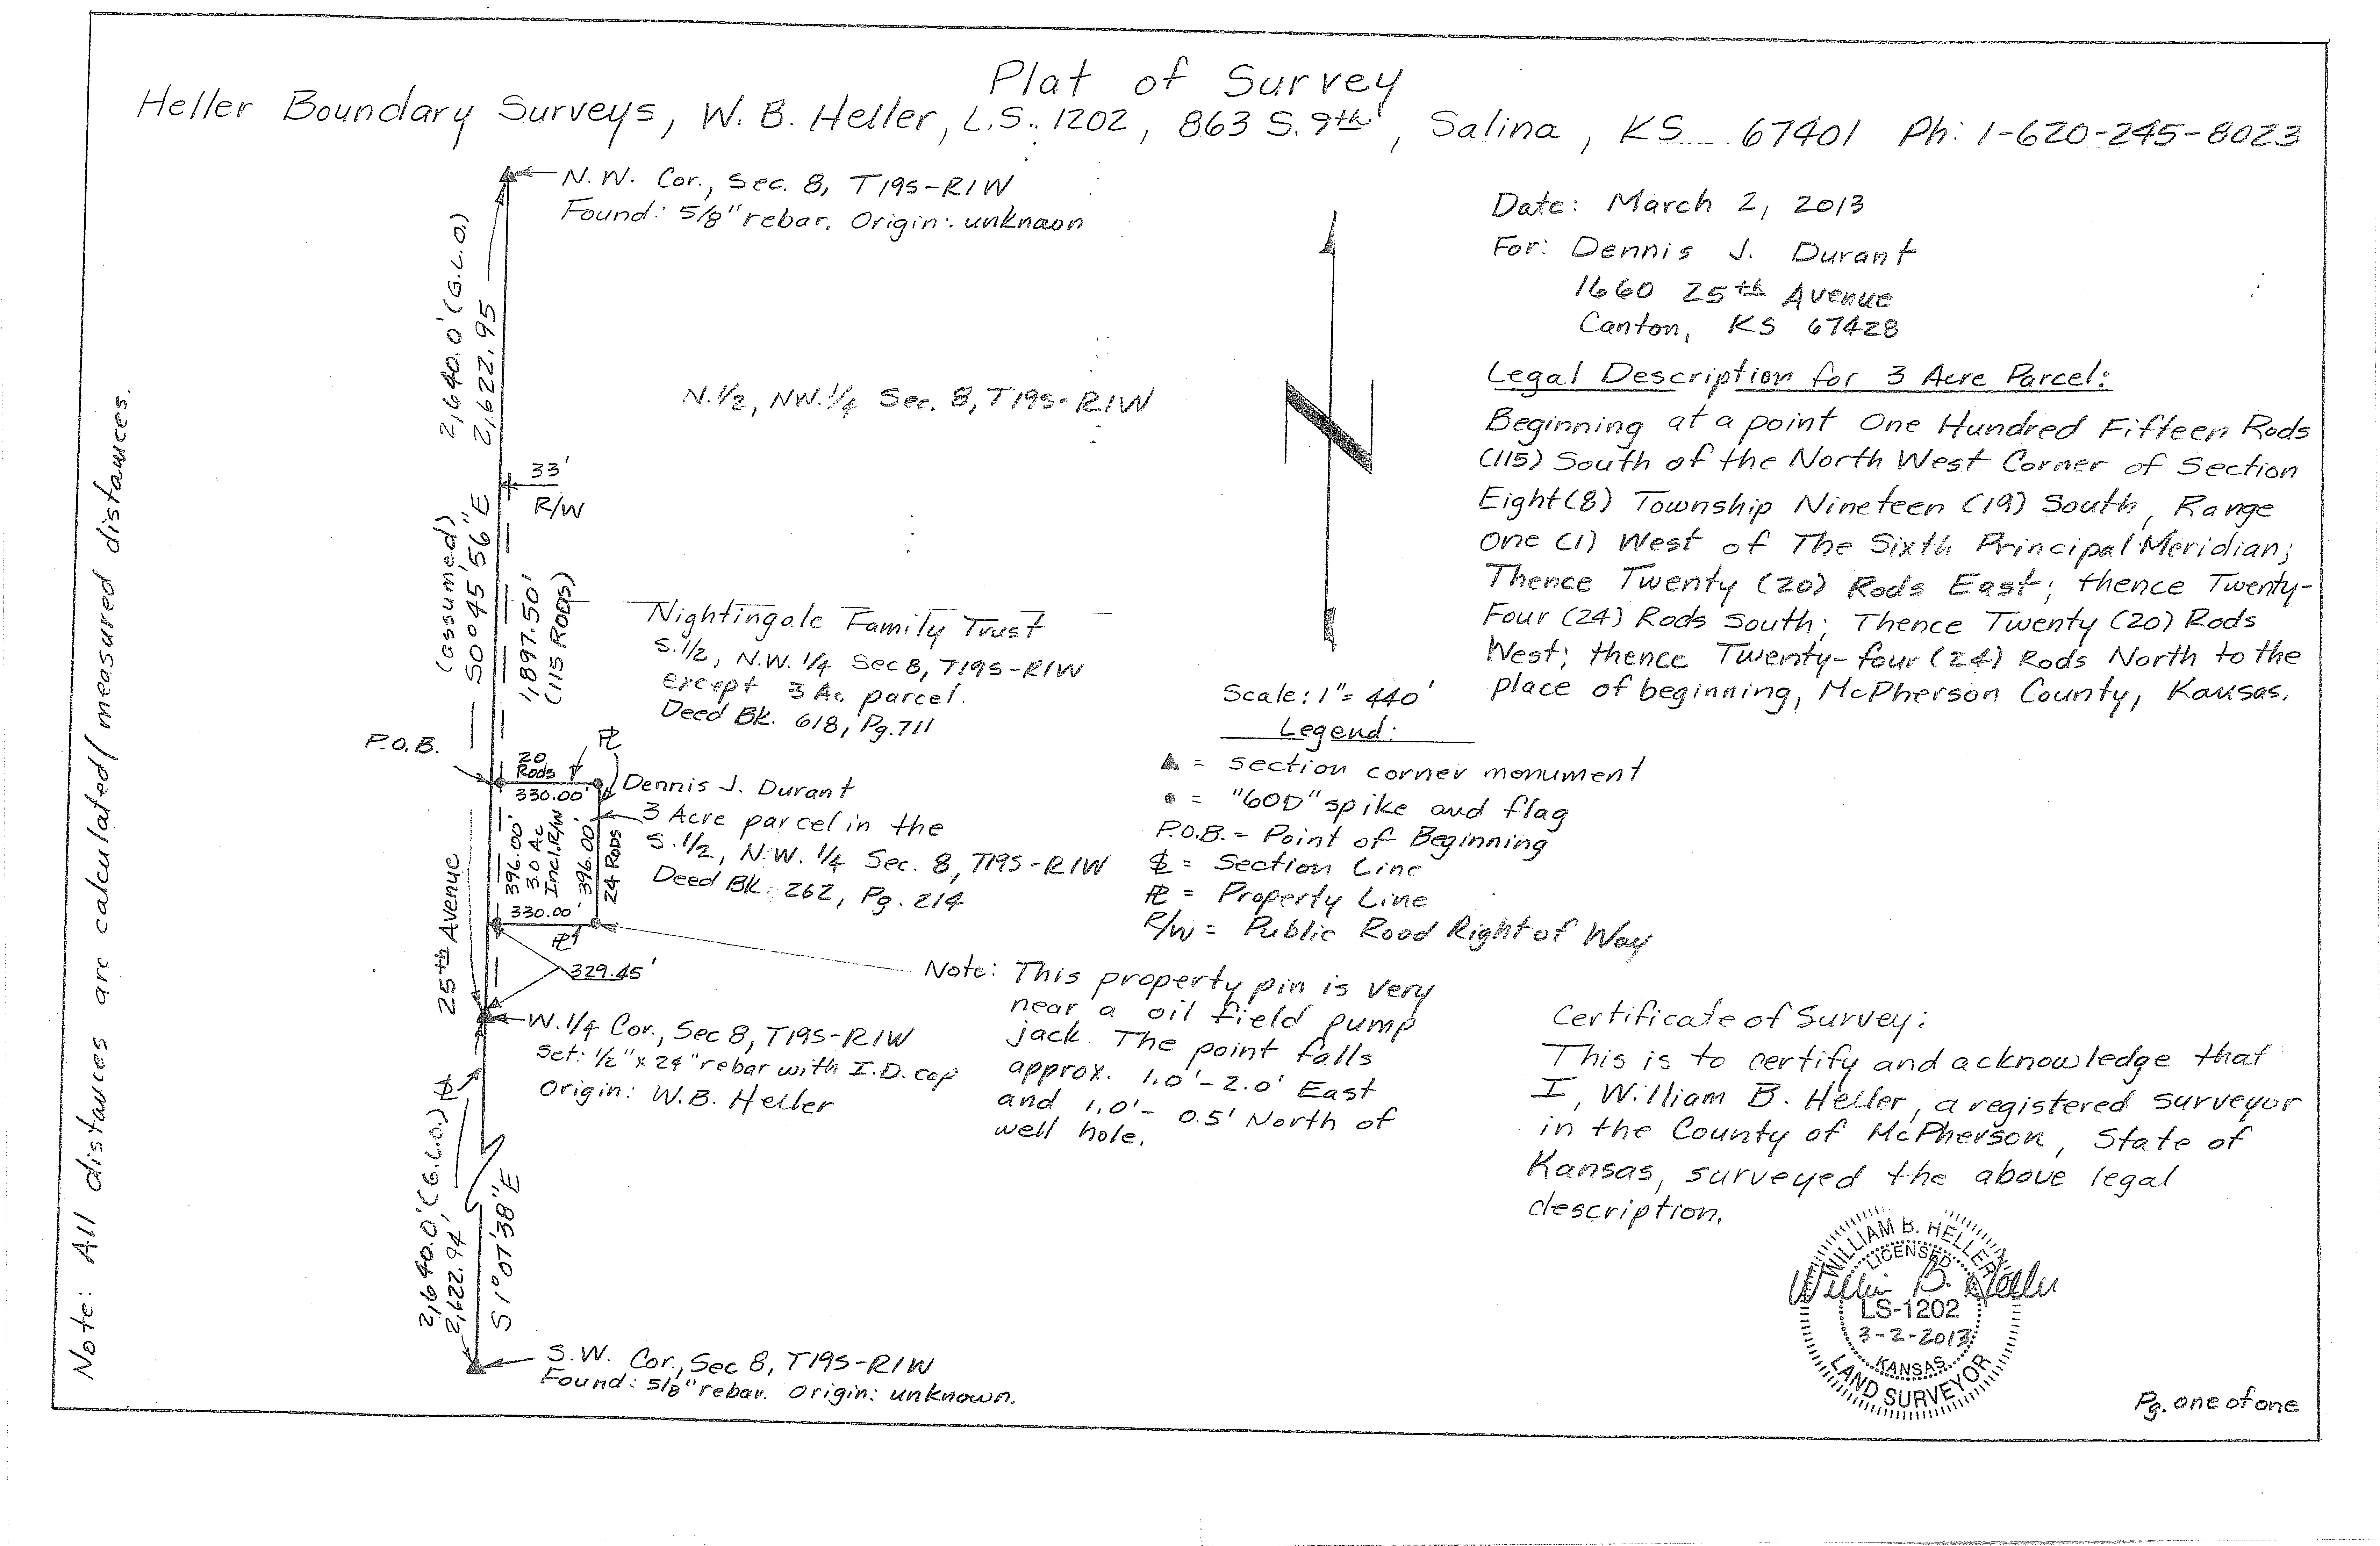 Plat of Survey
Heller Boundary Surveys, W. B. Heller, L.S. 1202, 863 S. 9th, Salina, KS 67401 Ph: 1-620-245-8023
N.W. Cor., Sec. 8, T19S-R1W
Found: 5/8" rebar. Origin: unknaon
2,640.0' (G.L.O.)
2,622.95
N.1/2, NW.1/4 Sec. 8, T19S-R1W
33'
R/W
(assumed)
S0°45'56"E
1,897.50'
(115 RODS)
Nightingale Family Trust
S.1/2, N.W. 1/4 Sec 8, T19S-R1W
except 3 Ac. parcel.
Deed Bk. 618, Pg. 711
P.O.B.
PL
20
Rods
330.00'
396.00'
3.0 Ac
Incl. R/W
396.00'
24 RODS
330.00'
PL
Dennis J. Durant
3 Acre parcel in the
S.1/2, N.W. 1/4 Sec. 8, T19S-R1W
Deed Bk. 262, Pg. 214
25th Avenue
329.45'
W.1/4 Cor., Sec 8, T19S-R1W
Set: 1/2" x 24" rebar with I.D. cap
Origin: W.B. Heller
2,640.0' (G.L.O.)
2,622.94'
S1°07'38"E
S.W. Cor., Sec 8, T19S-R1W
Found: 5/8" rebar. Origin: unknown.
Note: All distances are calculated/measured distances.
N
Scale: 1" = 440'
Legend:
▲ = section corner monument
● = "60D" spike and flag
P.O.B. = Point of Beginning
SL = Section Line
PL = Property Line
R/W = Public Road Right of Way
Note: This property pin is very
near a oil field pump
jack. The point falls
approx. 1.0'-2.0' East
and 1.0'- 0.5' North of
well hole.
Date: March 2, 2013
For: Dennis J. Durant
1660 25th Avenue
Canton, KS 67428
Legal Description for 3 Acre Parcel:
Beginning at a point One Hundred Fifteen Rods
(115) South of the North West Corner of Section
Eight (8) Township Nineteen (19) South, Range
One (1) West of The Sixth Principal Meridian;
Thence Twenty (20) Rods East; thence Twenty-
Four (24) Rods South; Thence Twenty (20) Rods
West; thence Twenty-four (24) Rods North to the
place of beginning, McPherson County, Kansas.
Certificate of Survey:
This is to certify and acknowledge that
I, William B. Heller, a registered surveyor
in the County of McPherson, State of
Kansas, surveyed the above legal
description.
WILLIAM B. HELLER
LICENSED
William B. Heller
LS-1202
3-2-2013
KANSAS
LAND SURVEYOR
Pg. one of one